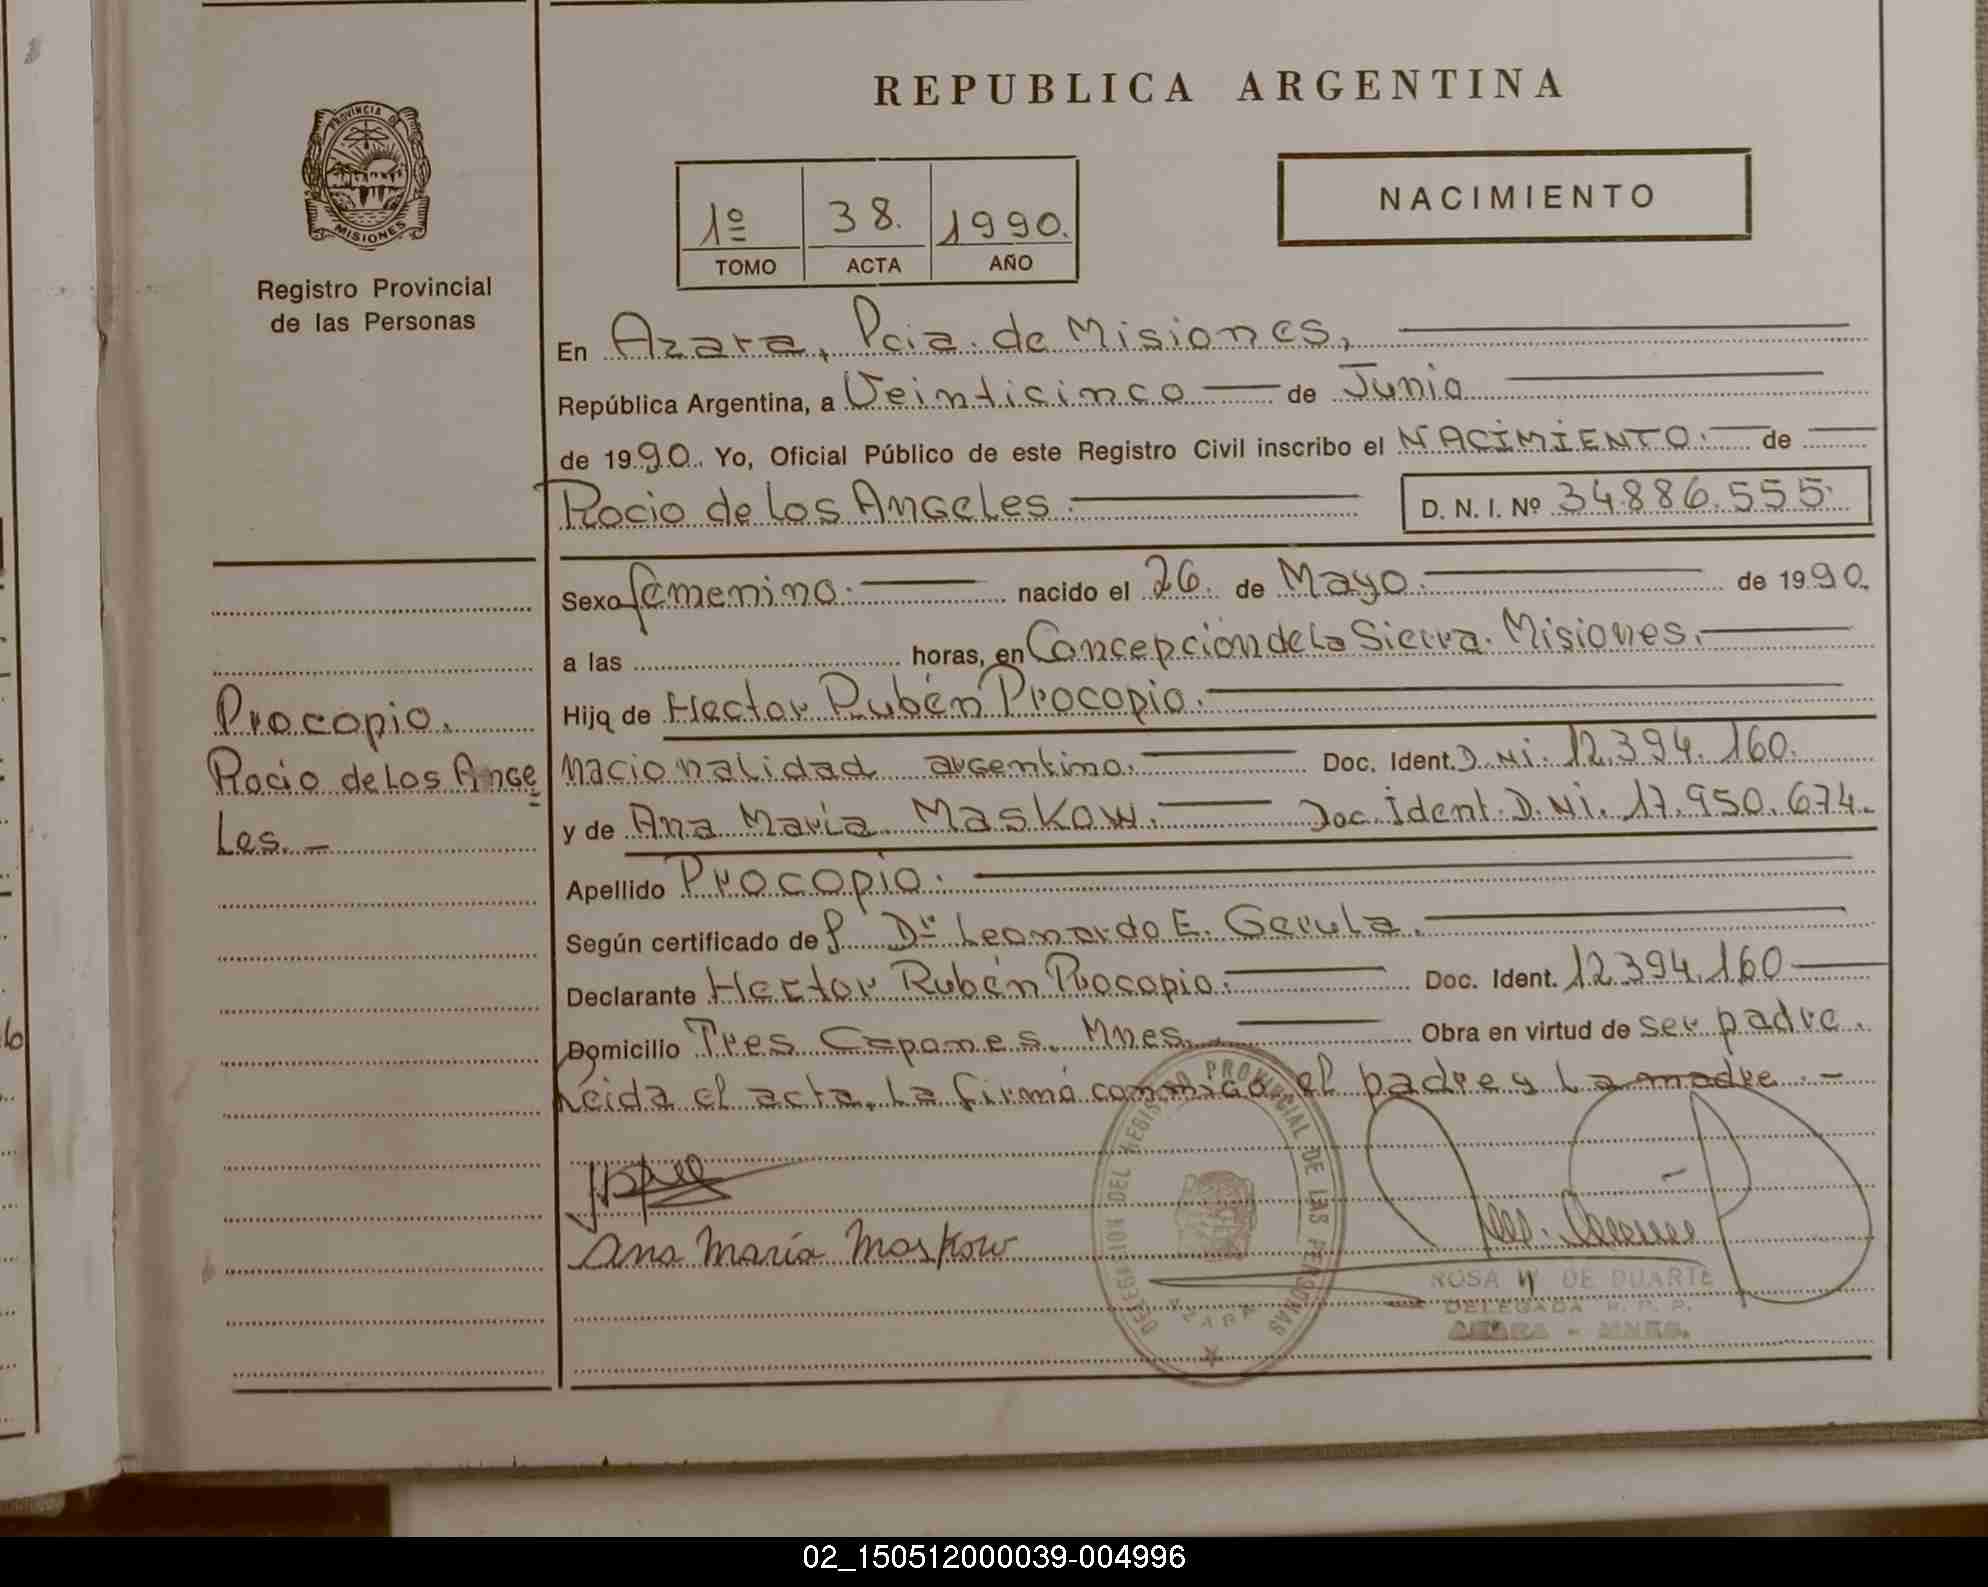 REPUBLICA ARGENTINA
PROVINCIA DE
MISIONES
Registro Provincial
de las Personas
1º 38. 1990.
TOMO ACTA AÑO
NACIMIENTO
En Azara, Pcia. de Misiones,
República Argentina, a Veinticinco de Junio
de 1990. Yo, Oficial Público de este Registro Civil inscribo el NACIMIENTO. de
Rocio de Los Angeles. D. N. I. Nº 34.886.555.
Sexo femenino. nacido el 26. de Mayo. de 1990.
a las horas, en Concepción de la Sierra. Misiones.
Procopio.
Rocio de Los Ange
Les. -
Hija de Hector Rubén Procopio.
nacionalidad argentino. Doc. Ident. D.Ni. 12.394.160.
y de Ana María Maskow. Doc. Ident. D.Ni. 17.950.674.
Apellido Procopio.
Según certificado de f. Dr Leonardo E. Gerula.
Declarante Hector Rubén Procopio. Doc. Ident. 12.394.160
Domicilio Tres Capones. Mnes. Obra en virtud de ser padre.
Leida el acta, La firmó conmigo el padre y La madre. -
Ana María Maskow
DELEGACION DEL REGISTRO PROVINCIAL DE LAS PERSONAS
AZARA
ROSA W DE DUARTE
DELEGADA R. P. P.
AZARA - MNES.
02_150512000039-004996